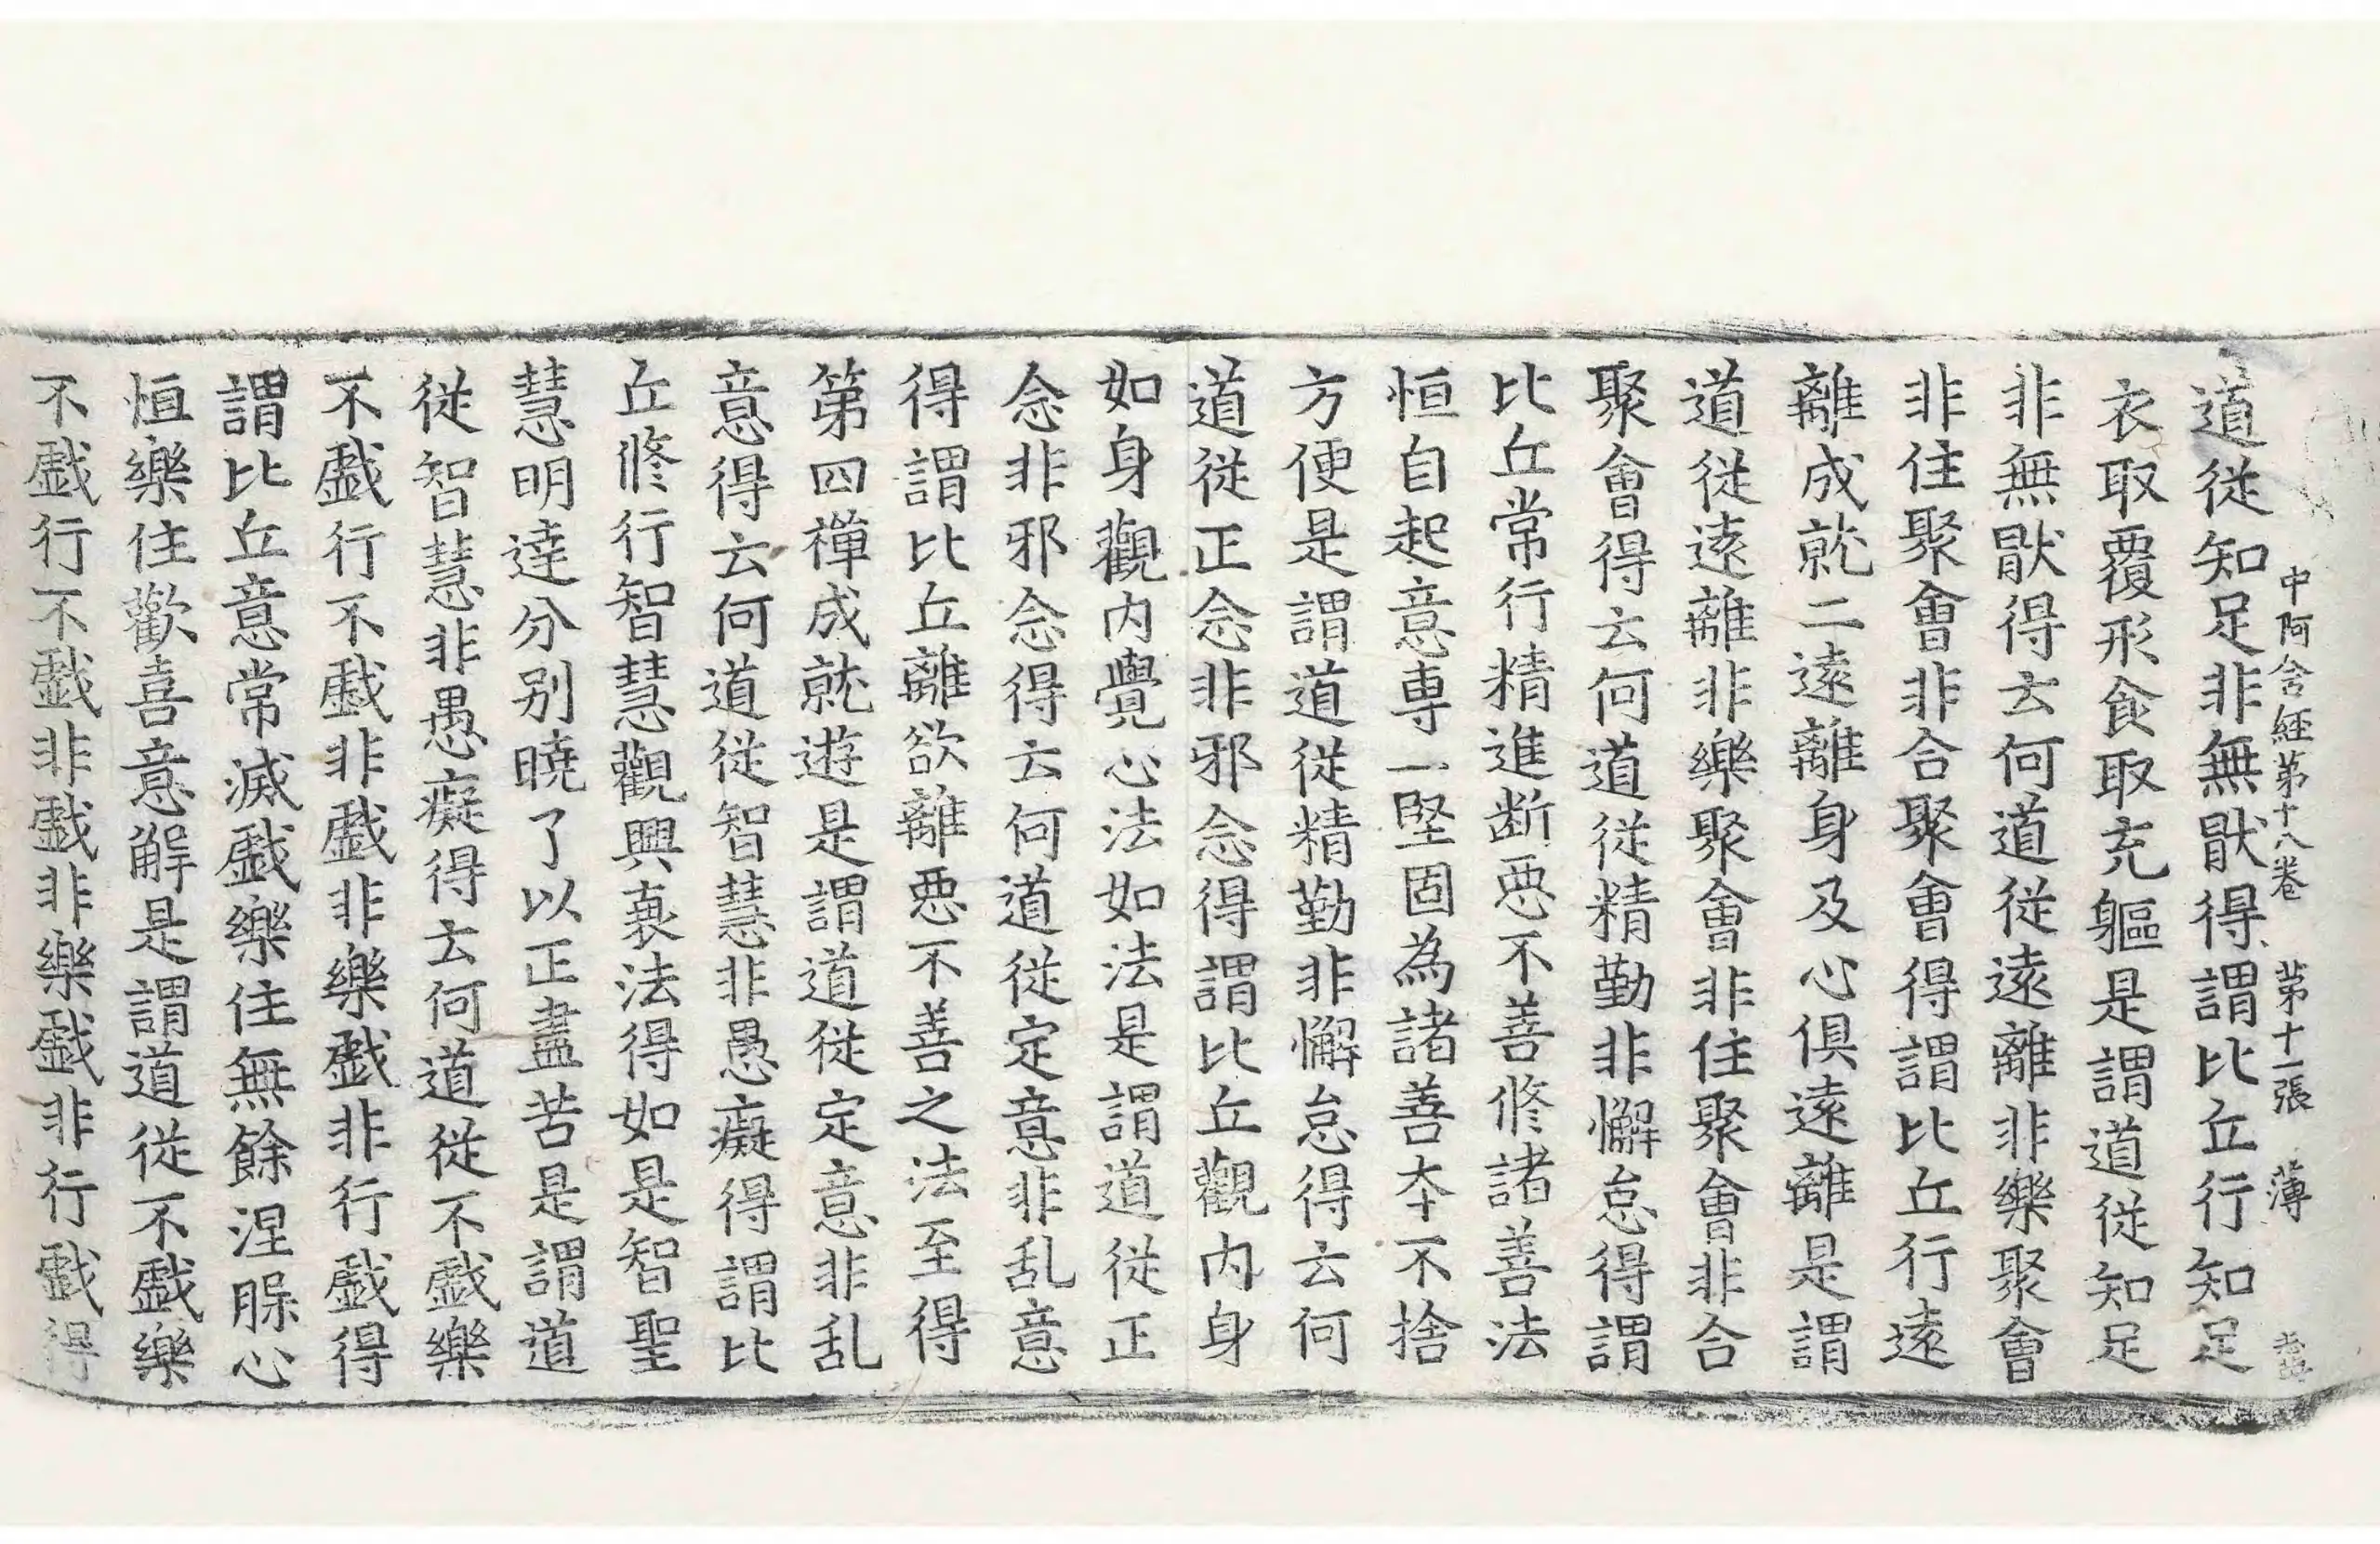 中阿含経第十八卷 第十一張 薄
道従知足非無猒得謂比丘行知足
衣取覆形食取充軀是謂道従知足
非無猒得云何道従遠離非樂聚會
非住聚會非合聚會得謂比丘行遠
離成就二遠離身及心俱遠離是謂
道従遠離非樂聚會非住聚會非合
聚會得云何道従精勤非懈怠得謂
比丘常行精進断惡不善修諸善法
恒自起意專一堅固為諸善本不捨
方便是謂道従精勤非懈怠得云何
道従正念非邪念得謂比丘觀内身
如身觀内覺心法如法是謂道従正
念非邪念得云何道従定意非乱意
得謂比丘離欲離惡不善之法至得
第四禪成就遊是謂道従定意非乱
意得云何道従智慧非愚癡得謂比
丘修行智慧觀興衰法得如是智聖
慧明達分别曉了以正盡苦是謂道
従智慧非愚癡得云何道従不戯樂
不戯行不戯非戯非樂戯非行戯得
謂比丘意常滅戯樂住無餘涅槃心
恒樂住歡喜意解是謂道従不戯樂
不戯行不戯非戯非樂戯非行戯得